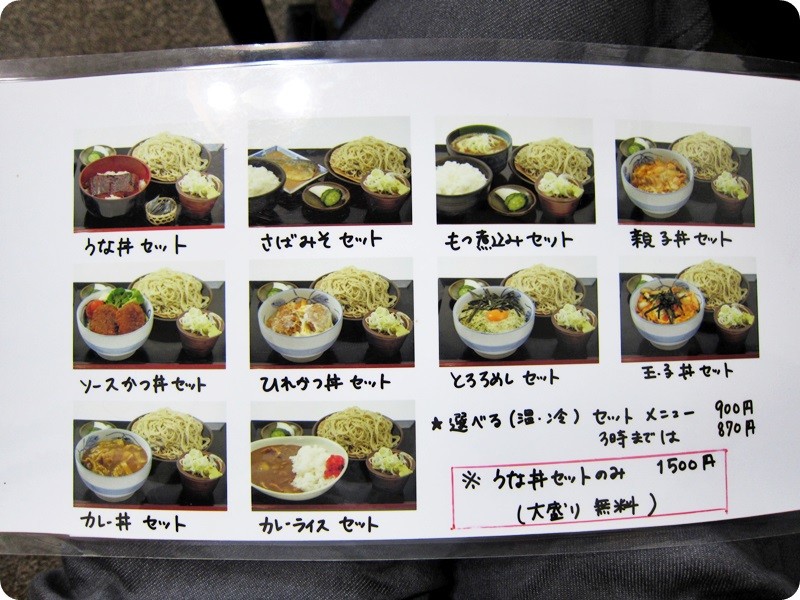 うな丼 セット
さばみそ セット
もつ煮込み セット
親子丼 セット
ソースかつ丼 セット
ひれかつ丼 セット
とろろめし セット
玉子丼 セット
★選べる(温・冷) セット メニュー 900円
3時までは 870円
※ うな丼セットのみ 1500円
(大盛り 無料)
カレー丼 セット
カレーライス セット